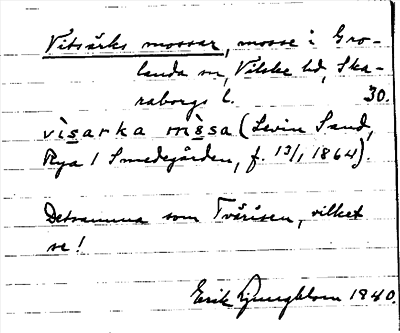 Vitsärks mossar, mosse i Gro-
landa sn, Vilske hd, Ska-
raborgs l. 30.
vìsarka mòsa (Levin Sand,
Rya / Smedegården, f. 13/1 1864).
Detsamma som Tvärisen, vilket
se!
Erik Ljungblom 1940.